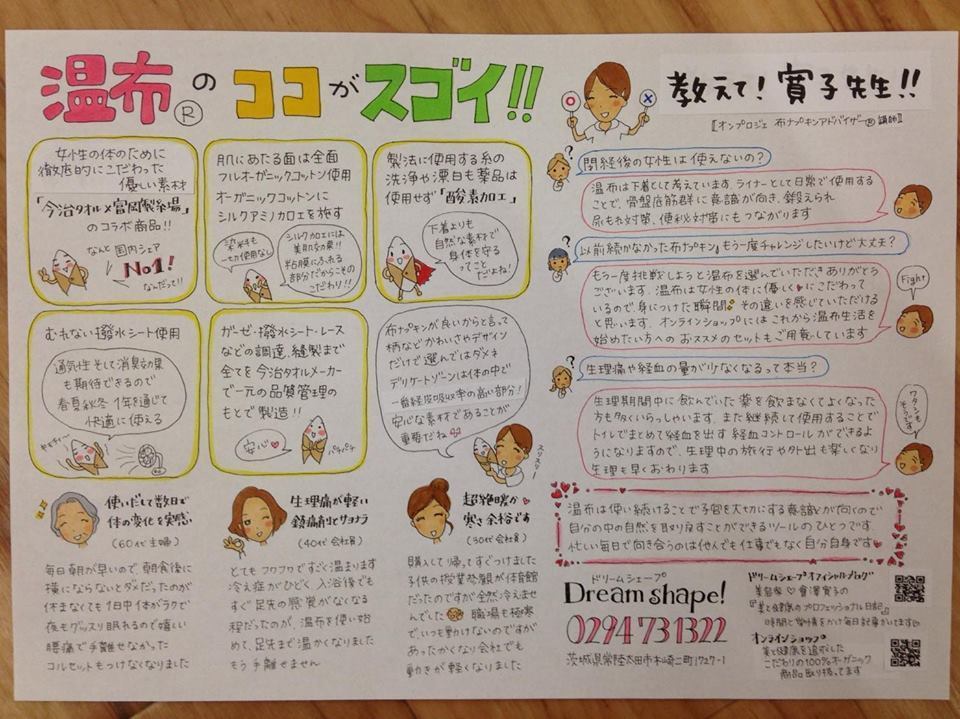 温布®のココがスゴイ!!
女性の体のために
徹底的にこだわった
優しい素材
「今治タオル×富岡製糸場」
のコラボ商品!!
なんと国内シェア
No1!
なんだって!!
肌にあたる面は全面
フルオーガニックコットン使用
オーガニックコットンに
シルクアミノ加工を施す
染料も
一切使用なし
シルク加工には
美肌効果!!
粘膜にふれる
部分だからこその
こだわり!!
製法に使用する糸の
洗浄や漂白も薬品は
使用せず「酵素加工」
下着よりも
自然な素材で
身体を守る
ってこと
だよね!
むれない撥水シート使用
通気性そして消臭効果
も期待できるので
春夏秋冬 1年を通じて
快適に使える
ガーゼ・撥水シート・レース
などの調達、縫製まで
全てを今治タオルメーカー
で一元の品質管理の
もとで製造!!
安心♥
パチパチ
布ナプキンが良いからと言って
柄などかわいさやデザイン
だけで選んではダメネ
デリケートゾーンは体の中で
一番経皮吸収率の高い部分!
安心な素材であることが
重要だね
スリスリ
使いだして数日で
体の変化を実感。
(60代 主婦)
毎日朝が早いので、朝食後に
横にならないとダメだったのが
休まなくても1日中体がラクで
夜もグッスリ眠れるので嬉しい
腰痛で手離せなかった
コルセットもつけなくなりました
生理痛が軽い
鎮痛剤にサヨナラ
(40代 会社員)
とてもフワフワですぐ温まります
冷え症がひどく、入浴後でも
すぐ足先の感覚がなくなる
程だったのが、温布を使い始
めて、足先まで温かくなりました
もう手離せません
超絶暖か
寒さ余裕です
(30代 会社員)
購入して帰ってすぐつけました
子供の授業参観が体育館
だったのですが全然冷えませ
んでした 職場も極寒
で、いつも動けないのですが
あったかくなり会社でも
動きが軽くなりました
教えて! 寛子先生!!
〖オンプロジェ 布ナプキンアドバイザー® 講師〗
閉経後の女性は使えないの?
温布は下着として考えています。ライナーとして日常で使用する
ことで、骨盤底筋群に意識が向き、鍛えられ
尿もれ対策、便秘対策にもつながります
以前続かなかった布ナプキン。もう一度チャレンジしたいけど大丈夫?
もう一度挑戦しようと温布を選んでいただきありがとう
ございます。温布は女性の体に優しく♥にこだわって
いるので身につけた瞬間 その違いを感じていただける
と思います。オンラインショップにはこれから温布生活を
始めたい方へのおススメのセットもご用意しています
Fight
生理痛や経血の量が少なくなるって本当?
生理期間中に飲んでいた薬を飲まなくてよくなった
方も多くいらっしゃいます。また継続して使用することで
トイレでまとめて経血を出す経血コントロールができるよ
うになりますので、生理中の旅行や外出も楽しくなり
生理も早くおわります
ワタシも
そうです
温布は使い続けることで子宮を大切にする意識が向くので
自分の中の自然を取り戻すことができるツールのひとつです
忙しい毎日で向き合うのは他人でも仕事でもなく自分自身です
ドリームシェープ
Dream shape!
0294 73 1322
茨城県常陸太田市木崎二町1727-1
ドリームシェープオフィシャルブログ
『美と健康のプロフェッショナル日記』
時間と愛情をかけ毎日記事かいています
オンラインショップ
美と健康を追及した
こだわりの100%オーガニック
商品取り扱ってます